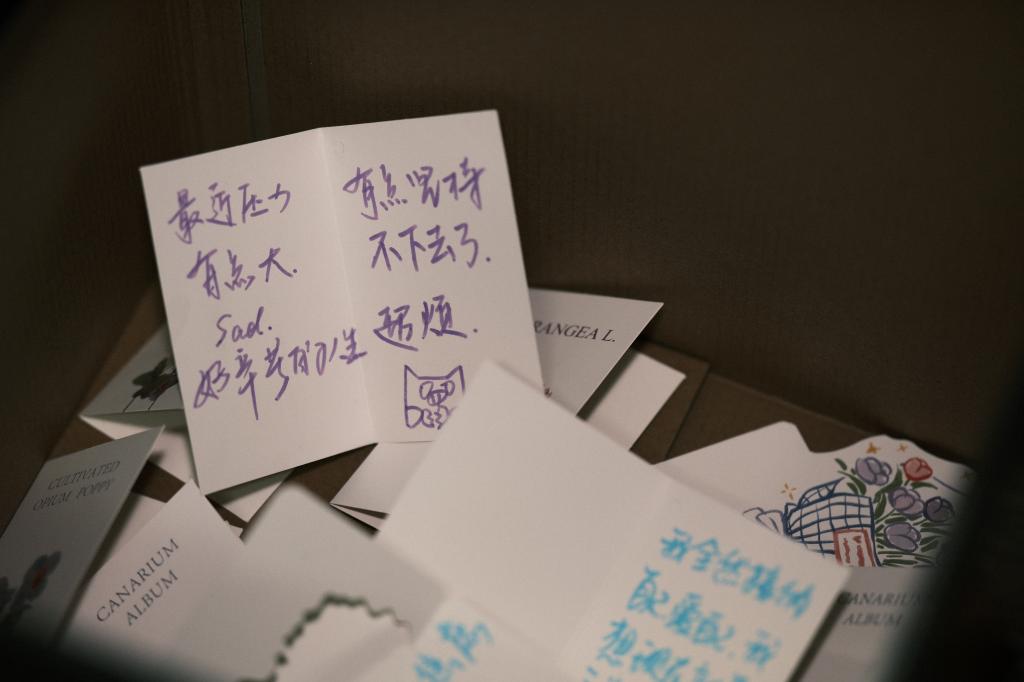 最近压力
有点大.
Sad.
好辛苦的人生
有点坚持
不下去了.
好烦.
RANGEA L.
CULTIVATED
OPIUM POPPY
CANARIUM
ALBUM
我全然接纳
我爱我.我
想
CANARIUM
ALBUM